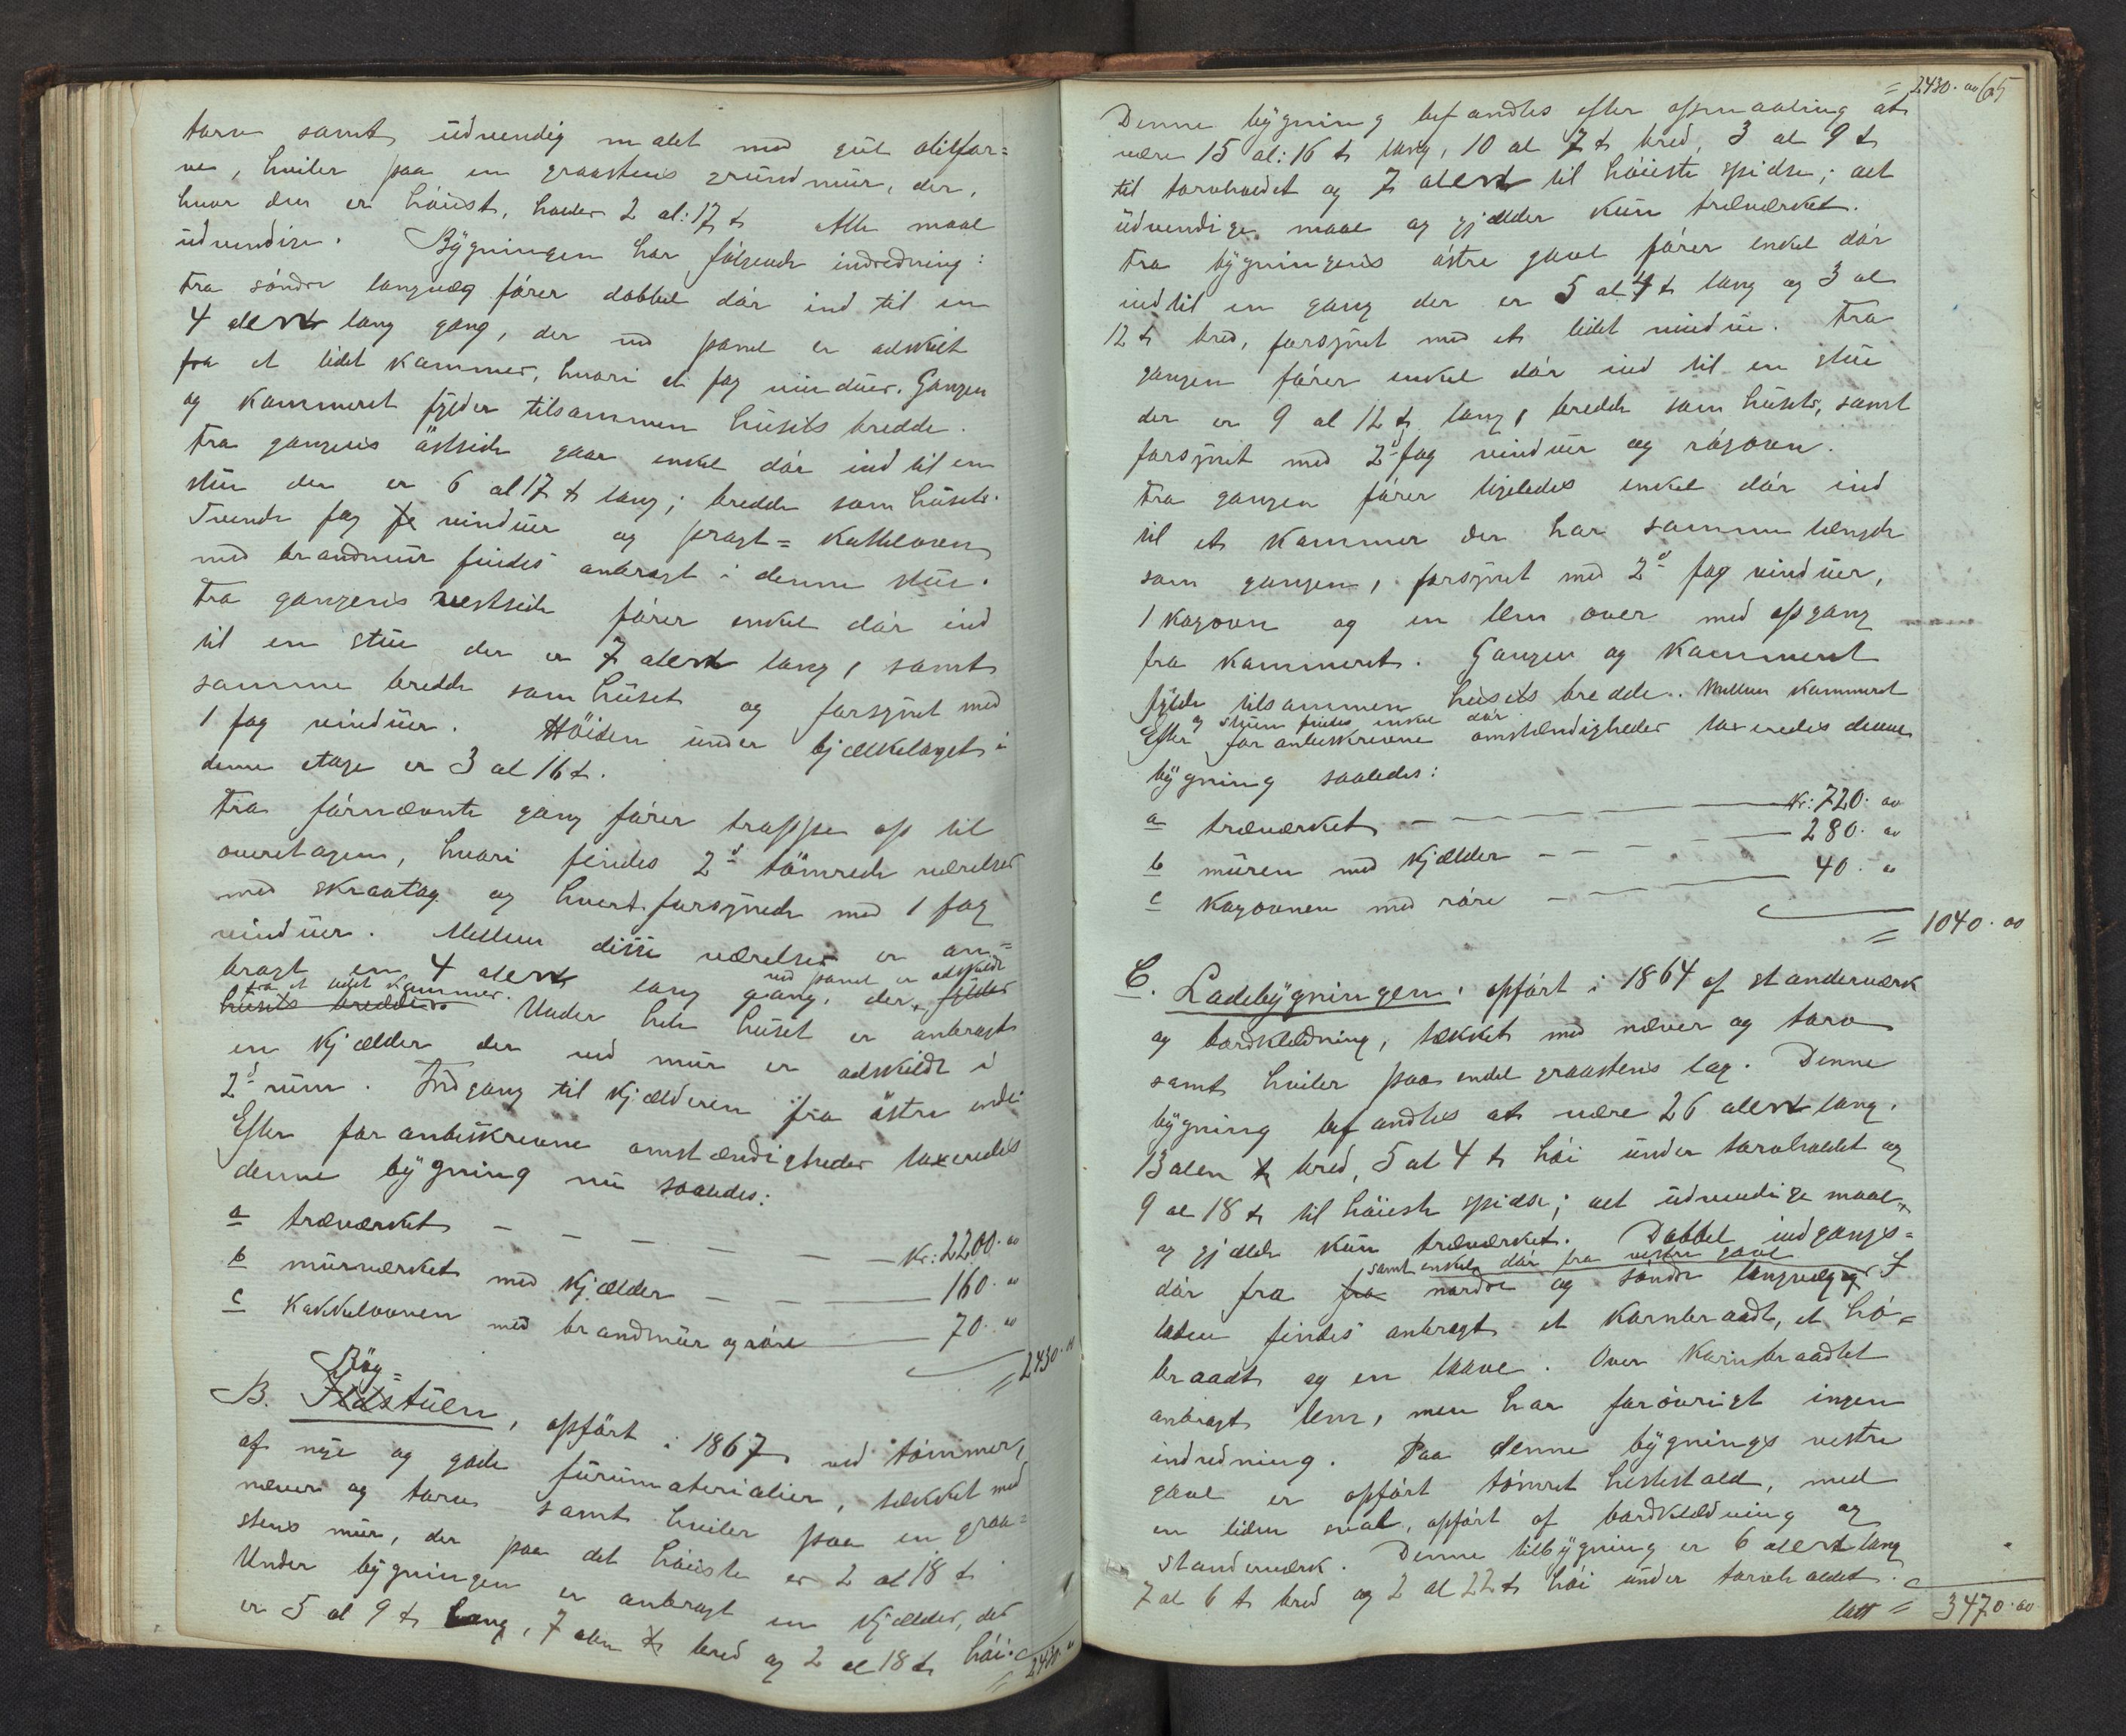 torv samt udvendig malet med gul oliefar=
ve, hviler paa en graastens grundmur, der,
hvor den er høiest, holder 2 al: 17 t. Alle maal
udvendige. Bygningen har følgende indredning:
Fra søndre langvæg fører dobbel dør ind til en
4 alen lang gang, der ved panel er adskilt
fra et lidet kammer, hvori et fag vinduer. Gangen
og kammeret fylder tilsammen husets bredde.
Fra gangens østside gaar enkel dør ind til en
stue der er 6 al 17 t lang; bredde som husets.
Tvende fag vinduer og pragt=kakkelovn
med brandmur findes anbragt i denne stue.
Fra gangens vestside fører enkel dør ind
til en stue der er 7 alen lang, samt
samme bredde som huset og forsynet med
1 fag vinduer. Høiden under bjælkelaget i
denne etage er 3 al 16 t.
Fra førnævnte gang fører trappe op til
overetagen, hvori findes 2de tømrede værelser
med skraatag og hvert forsynede med 1 fag
vinduer. Mellem disse værelser er an=
bragt en 4 alen lang gang, der ved panel er adskildt fylder
fra et lidet kammer.
husets bredde. Under hele huset er anbragt
en kjælder der ved mur er adskildt i
2de rum. Indgang til kjælderen fra østre ende
Efter foranbeskrevne omstændigheder taxeredes
denne bygning nu saaledes:
a træværket — Kr: 2200.00
b murværket med kjælder — 160.00
c kakkelovnen med brandmur og røre — 70.00
= 2430.00
Røg=
B. Ildstuen, opført i 1867 ved tømmer,
af nye og gode furumaterialier, tækket med
næver og torv samt hviler paa en graa=
stens mur, der paa det høieste er 2 al 18 t.
Under bygningen er anbragt en kjælder, der
er 5 al 9 t lang, 7 alen bred og 2 al 18 t høi.
= 2430.00
= 2430.00 65
Denne bygning befandtes efter opmaaling at
være 15 al: 16 t lang, 10 al 7 t bred, 3 al 9 t
til torvholdet og 7 alen til høieste spidse; alt
udvendige maal og gjælder kun træværket.
Fra bygningens østre gavl fører enkel dør
ind til en gang der er 5 al 4 t lang og 3 al
12 t bred, forsynet med et lidet vindu. Fra
gangen fører enkel dør ind til en stue
der er 9 al 12 t lang, bredde som husets, samt
forsynet med 2de fag vinduer og røgovn.
Fra gangen fører ligeledes enkel dør ind
til et kammer der har samme længde
som gangen, forsynet med 2de fag vinduer,
1 kogovn og en lem over med opgang
fra kammeret. Gangen og kammeret
fylde tilsammen husets bredde. Mellem kammeret
og stuen findes enkel dør.
Efter foranbeskrevne omstændigheder taxeredes denne
bygning saaledes:
a træværket — Kr: 720.00
b muren med kjælder — 280.00
c kogovnen med røre — 40.00
= 1040.00
C. Ladebygningen, opført i 1864 af standerværk
og bordklædning, tækket med næver og torv
samt hviler paa endel graastens lag. Denne
bygning befandtes at være 26 alen lang,
13 alen bred, 5 al 4 t høi under torvholdet og
9 al 18 t til høieste spidse; alt udvendige maal
og gjælde kun træværket. Dobbel indgangs=
samt enkel dør fra vestre gavl
dør fra fra nordre og søndre langvæg. I
laden findes anbragt et kornbraadt, et hø=
braadt og en laave. Over kornbraadtet
anbragt lem, men har forøvrigt ingen
indredning. Paa denne bygnings vestre
gavl er opført tømret hestestald, med
en liden sval, opført af bordklædning og
standerværk. Denne tilbygning er 6 alen lang
7 al 6 t bred og 2 al 22 t høi under torvholdet.
latt = 3470.00